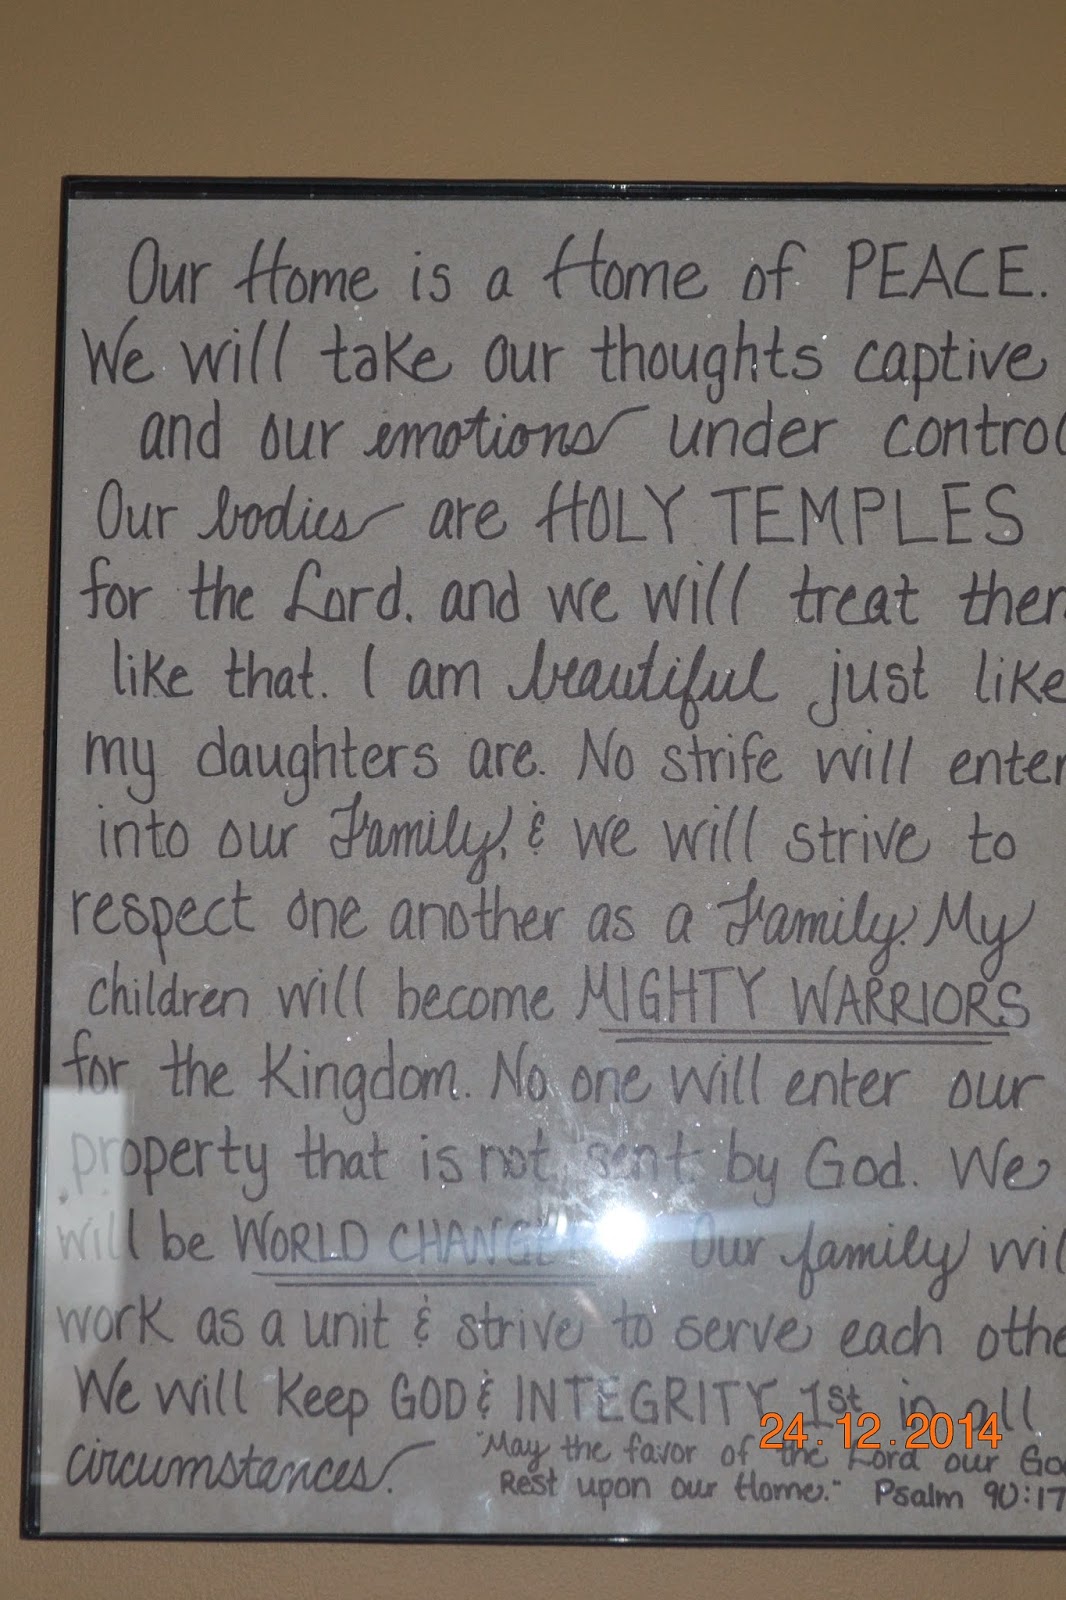 Our Home is a Home of PEACE.
We will take our thoughts captive
and our emotions under contro
Our bodies are HOLY TEMPLES
for the Lord. and we will treat them
like that. I am beautiful just like
my daughters are. No strife will enter
into our Family, & we will strive to
respect one another as a Family. My
children will become MIGHTY WARRIORS
for the Kingdom. No one will enter our
property that is not sent by God. We
will be WORLD CHANGE Our family wil
work as a unit & strive to serve each othe
We will keep GOD & INTEGRITY 1st in all
circumstances.
"May the favor of the Lord our Go
Rest upon our Home." Psalm 90:17
24.12.2014